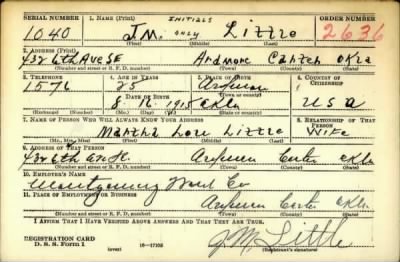 SERIAL NUMBER 1. NAME (Print) INITIALS ORDER NUMBER
1040 J.M. ONLY Little 2636
(First) (Middle) (Last)
2. ADDRESS (Print)
432 6th Ave SE Ardmore Carter Okla
(Number and street or R. F. D. number) (Town) (County) (State)
3. TELEPHONE 4. AGE IN YEARS 5. PLACE OF BIRTH 6. COUNTRY OF CITIZENSHIP
1576 25 Ardmore
(Town or county)
8-16-1915 Okla USA
7. NAME OF PERSON WHO WILL ALWAYS KNOW YOUR ADDRESS 8. RELATIONSHIP OF THAT PERSON
Martha Lou Little Wife
(Mr., Mrs., Miss) (First) (Middle) (Last)
9. ADDRESS OF THAT PERSON
432 6th Ardmore Carter Okla
(Number and street or R. F. D. number) (Town) (County) (State)
10. EMPLOYER'S NAME
Montgomery Ward Co
11. PLACE OF EMPLOYMENT OR BUSINESS
Ardmore Carter Okla
(Number and street or R. F. D. number) (Town) (County) (State)
I AFFIRM THAT I HAVE VERIFIED ABOVE ANSWERS AND THAT THEY ARE TRUE.
REGISTRATION CARD
D. S. S. Form 1 (over) 16-17105 J. M. Little
(Registrant's signature)